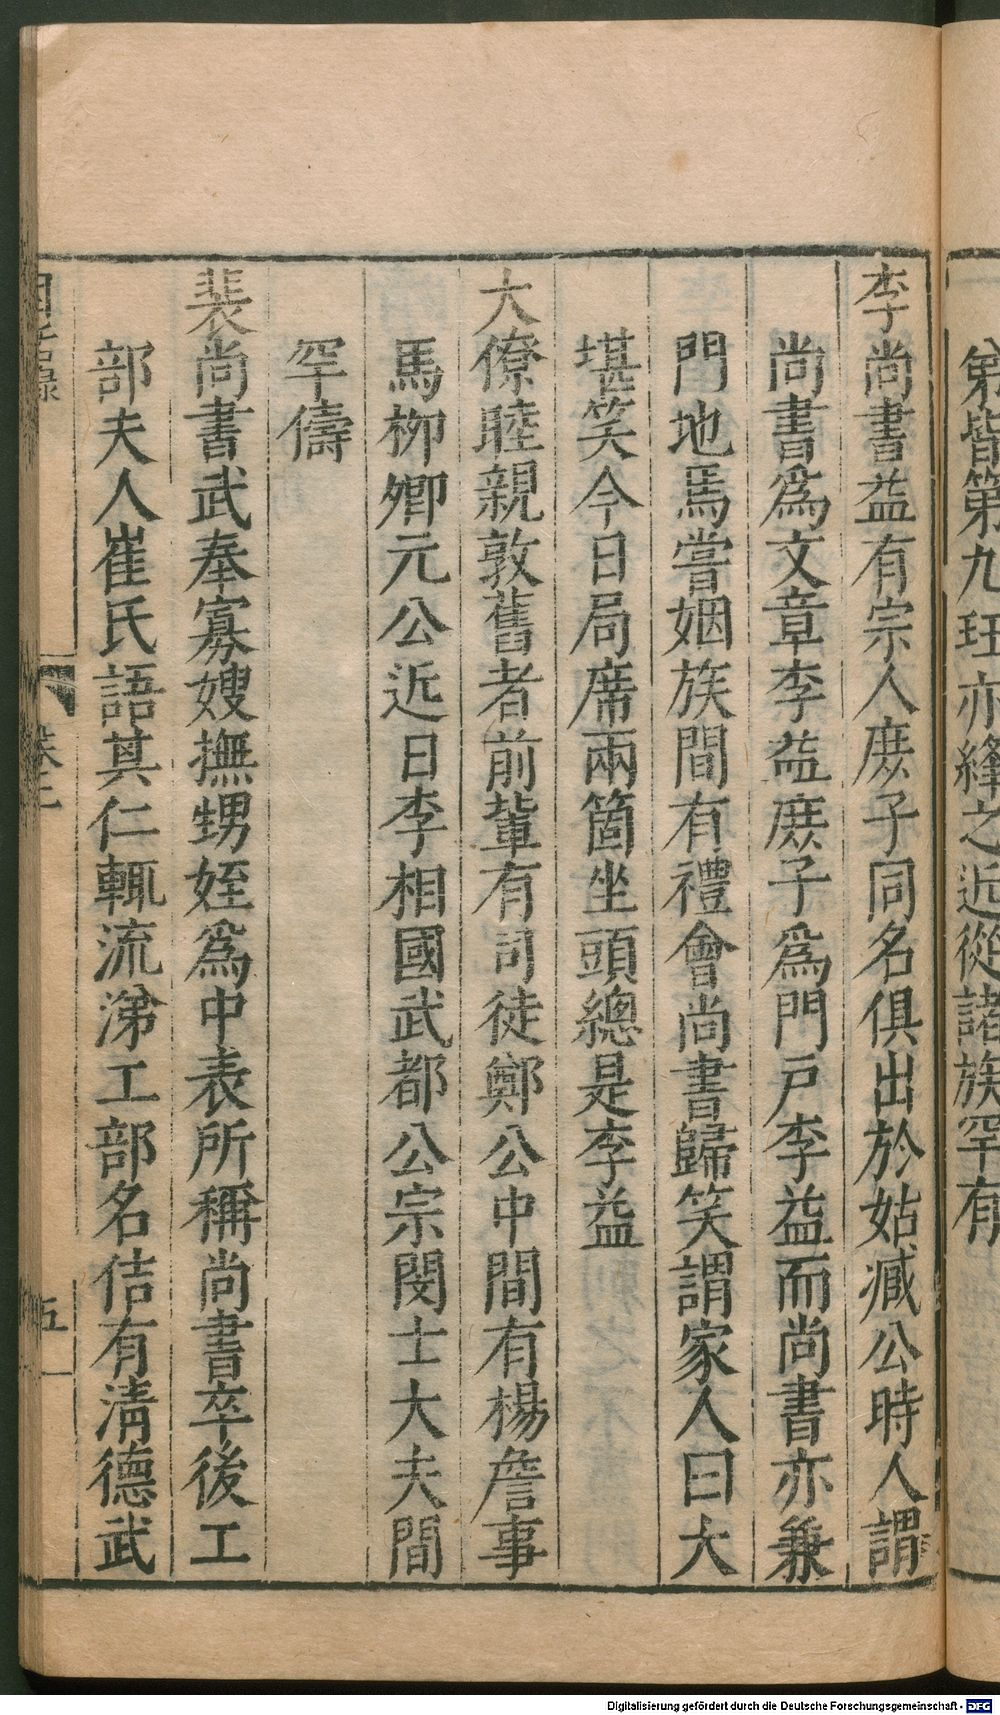 第皆第九班亦絳之近從諸族罕有
李尚書益有宗人庶子同名俱出於姑臧公時人謂
尚書爲文章李益庶子爲門戶李益而尚書亦兼
門地焉嘗姻族間有禮會尚書歸笑謂家人曰大
堪笑今日局席兩箇坐頭總是李益
大僚睦親敦舊者前輩有司徒鄭公中間有楊詹事
馬柳卿元公近日李相國武都公宗閔士大夫間
罕儔
裴尚書武奉寡嫂撫甥姪爲中表所稱尚書卒後工
部夫人崔氏語其仁輒流涕工部名佶有清德武
因話錄
卷三
五
Digitalisierung gefördert durch die Deutsche Forschungsgemeinschaft - DFG